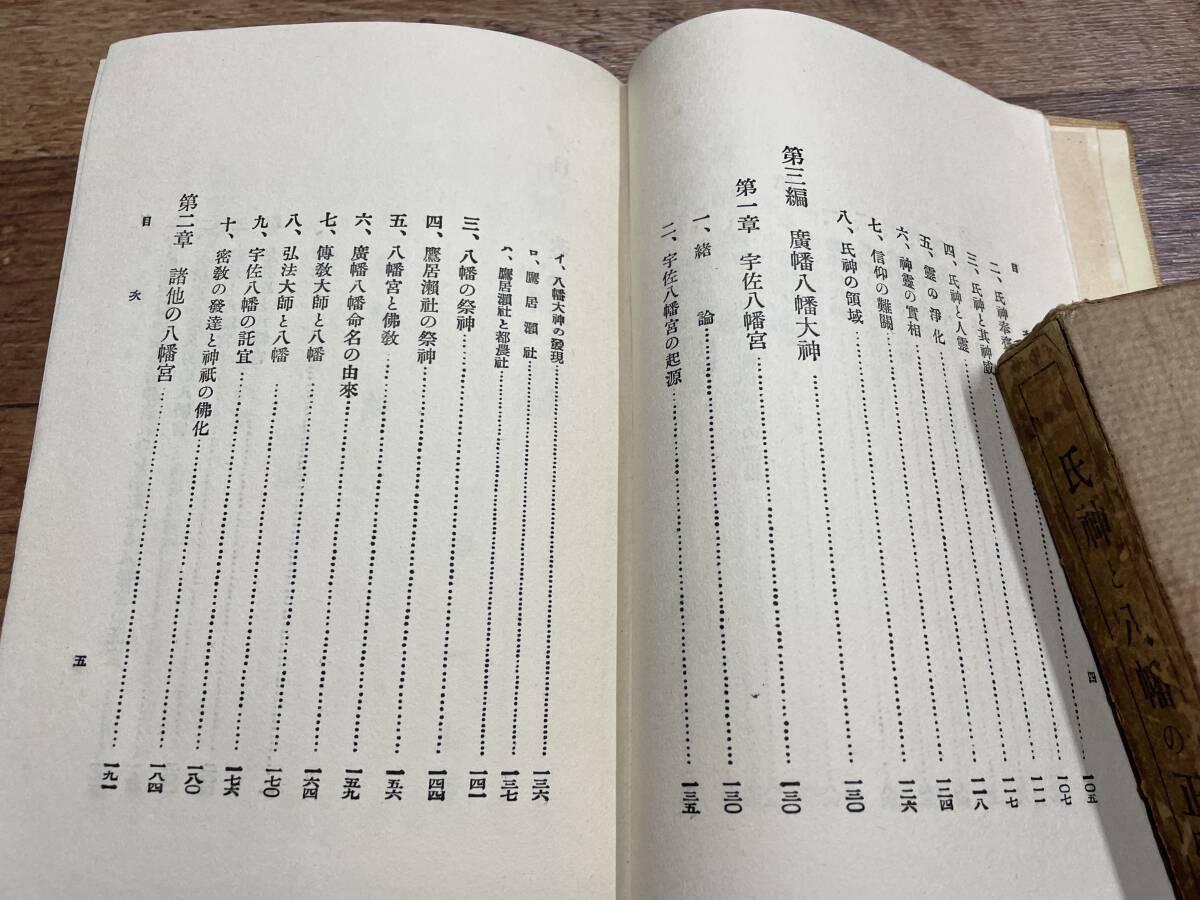 目
二、氏神奉……一〇五
三、氏神と其神威……一〇七
四、氏神と人靈……一一一
五、靈の淨化……一一七
六、神靈の實相……一一八
七、信仰の難關……一二四
八、氏神の領域……一二六
第三編 廣幡八幡大神……一三〇
第一章 宇佐八幡宮……一三〇
一、緒論……一三〇
二、宇佐八幡宮の起源……一三五
四
イ、八幡大神の發現……一三六
ロ、鷹居瀬社……一三七
ハ、鷹居瀬社と都農社……一四一
三、八幡の祭神……一四四
四、鷹居瀬社の祭神……一五六
五、八幡宮と佛敎……一五九
六、廣幡八幡命名の由來……一六四
七、傳敎大師と八幡……一七〇
八、弘法大師と八幡……一七六
九、宇佐八幡の託宣……一八〇
十、密敎の發達と神祇の佛化……一八四
第二章 諸他の八幡宮……一九一
目次
五
氏神と八幡の正